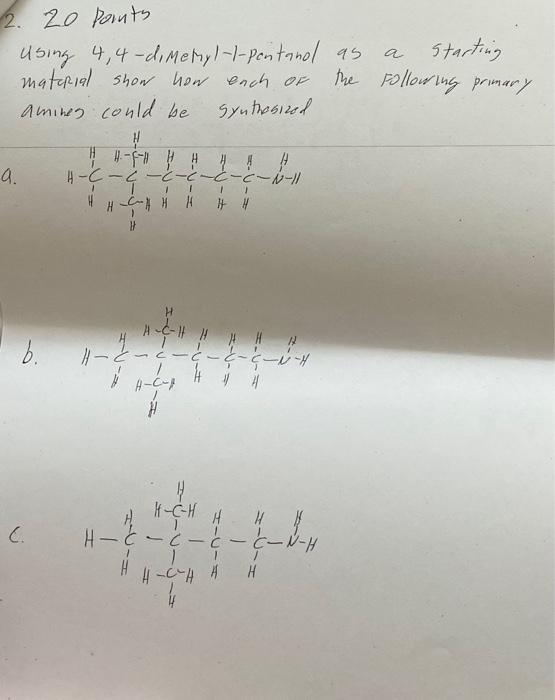 2. 20 Points
Using 4,4-dimethyl-1-pentanol as a starting
material show how each of the following primary
amines could be synthesized
a.
H
H H-C-H H H H H H
H-C-C-C-C-C-C-N-H
H H-C-H H H H H
H
b.
H
H H-C-H H H H H
H-C-C-C-C-C-N-H
H H-C-H H H H
H
c.
H
H H-C-H H H H
H-C-C-C-C-N-H
H H-C-H H H
H